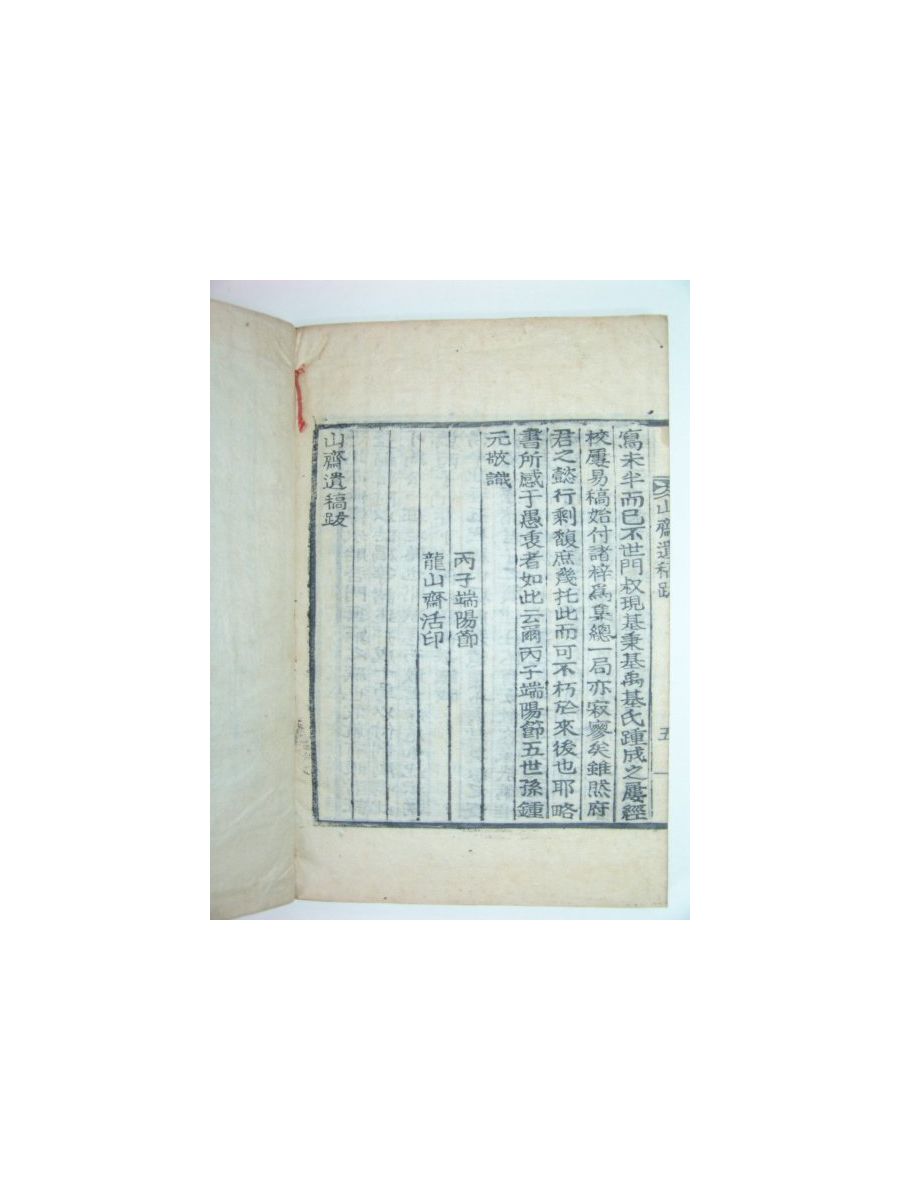 山齋遺稿跋
五
寫未半而已不世門叔現基秉基禹基氏踵成之屢經
校屢易稿始付諸梓爲蒐總一局亦寂寥矣雖然府
君之懿行剩馥庶幾托此而可不朽於來後也耶略
書所感于愚衷者如此云爾丙子端陽節五世孫鍾
元敬識
丙子端陽節
龍山齋活印
山齋遺稿跋